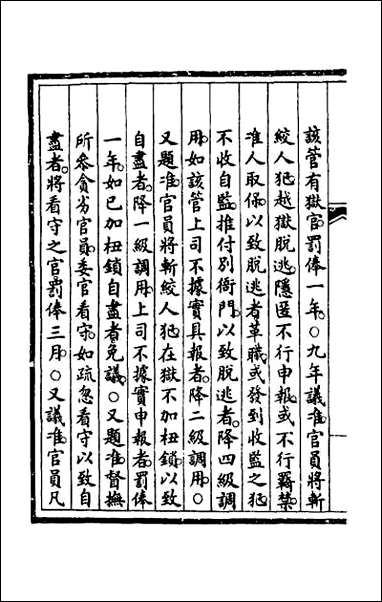 該管有獄官罰俸一年。○九年議准官員將斬
絞人犯越獄脫逃隱匿不行申報或不行羈禁。
准人取保以致脫逃者革職或發到收監之犯
不收自監推付別衙門以致脫逃者。降四級調
用。如該管上司不據實具報者。降二級調用。○
又題准官員將斬絞人犯在獄不加杻鎖以致
自盡者。降一級調用。上司不據實申報者。罰俸
一年。如已加杻鎖自盡者免議。○又題准督撫
所參貪劣官員。委官看守。如疏忽看守以致自
盡者。將看守之官罰俸三月。○又議准官員凡